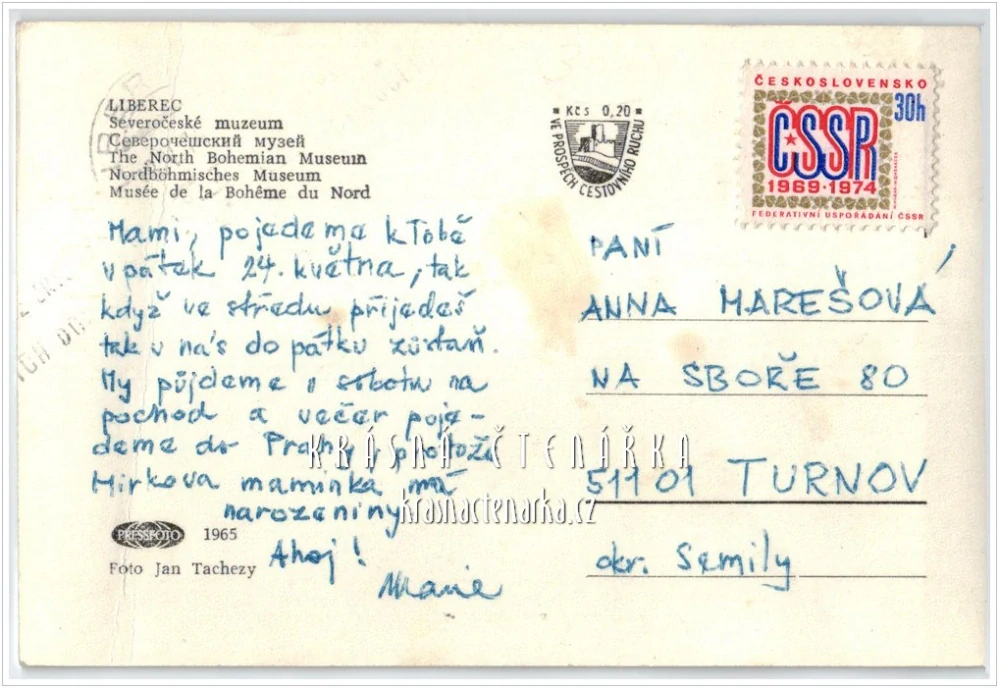 LIBEREC
Severočeské muzeum
Северочешский музей
The North Bohemian Museum
Nordböhmisches Museum
Musée de la Bohême du Nord
Kčs 0,20
VE PROSPĚCH CESTOVNÍHO RUCHU
ČESKOSLOVENSKO
30h
ČSSR
1969·1974
FEDERATIVNÍ USPOŘÁDÁNÍ ČSSR
Mami, pojedeme k Tobě
v pátek 24. května, tak
když ve středu přijedeš
tak u nás do pátku zůstaň.
My půjdeme v sobotu na
pochod a večer poje-
deme do Prahy, protože
Mirkova maminka má
narozeniny
Ahoj!
Marie
PANÍ
ANNA MAREŠOVÁ
NA SBOŘE 80
511 01 TURNOV
okr. Semily
KRÁSNÁ ČTENÁŘKA
krasnactenarka.cz
PRESSFOTO 1965
Foto Jan Tachezy